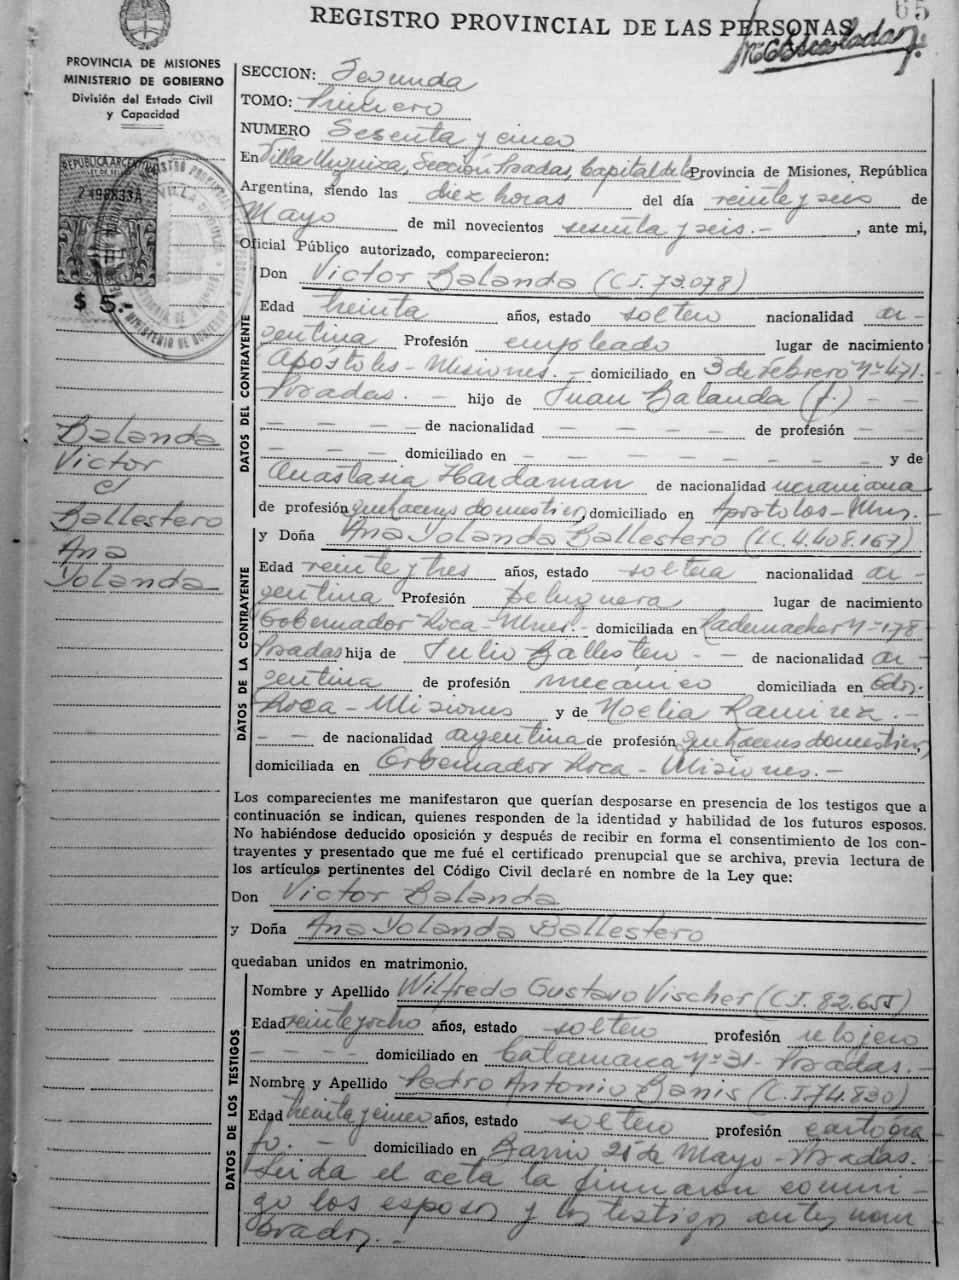 65
REGISTRO PROVINCIAL DE LAS PERSONAS
PROVINCIA DE MISIONES
MINISTERIO DE GOBIERNO
División del Estado Civil
y Capacidad
REPUBLICA ARGENTINA
$ 5.-
Balanda
Victor
c
Ballestero
Ana
Yolanda
SECCION: Segunda
TOMO: Primero
NUMERO Sesenta y cinco
En Villa Urquiza, Sección Posadas, Capital de la Provincia de Misiones, República
Argentina, siendo las diez horas del día veinte y seis de
Mayo de mil novecientos sesenta y seis.-, ante mi,
Oficial Público autorizado, comparecieron:
DATOS DEL CONTRAYENTE
Don Victor Balanda (C.I. 73.078)
Edad treinta años, estado soltero nacionalidad ar-
gentina Profesión empleado lugar de nacimiento
Apóstoles - Misiones. - domiciliado en 3 de Febrero Nº 471.
Posadas. - hijo de Juan Balanda (f.) - -
- - - - - de nacionalidad - - - - - de profesión - -
- - - - domiciliado en - - - - - - - - y de
Anastasia Hardaman de nacionalidad ucraniana
de profesión quehaceres domesticos, domiciliado en Apostoles - Mnes.
DATOS DE LA CONTRAYENTE
y Doña Ana Yolanda Ballestero (L.C. 4.408.167)
Edad veinte y tres años, estado soltera nacionalidad ar-
gentina Profesión Peluquera lugar de nacimiento
Gobernador Roca - Mnes. - domiciliada en Rademacher Nº 178-
Posadas hija de Julio Ballestero - - de nacionalidad ar-
gentina de profesión mecánico domiciliada en Gdor.
Roca - Misiones y de Noelia Ramirez. -
- - de nacionalidad argentina de profesión quehaceres domesticos,
domiciliada en Gobernador Roca - Misiones. -
Los comparecientes me manifestaron que querían desposarse en presencia de los testigos que a
continuación se indican, quienes responden de la identidad y habilidad de los futuros esposos.
No habiéndose deducido oposición y después de recibir en forma el consentimiento de los con-
trayentes y presentado que me fué el certificado prenupcial que se archiva, previa lectura de
los artículos pertinentes del Código Civil declaré en nombre de la Ley que:
Don Victor Balanda
y Doña Ana Yolanda Ballestero
quedaban unidos en matrimonio.
DATOS DE LOS TESTIGOS
Nombre y Apellido Wilfredo Gustavo Vischer (C.I. 82.655)
Edad veinte y ocho años, estado soltero profesión relojero
- - - - domiciliado en Catamarca Nº 31 - Posadas. -
Nombre y Apellido Pedro Antonio Banis (C.I. 74.830)
Edad treinta y cinco años, estado soltero profesión cartógra
fo. - domiciliado en Barrio 25 de Mayo - Posadas.
Leida el acta la firmaron conmi-
go los esposos y los testigos antes nom
brados. -